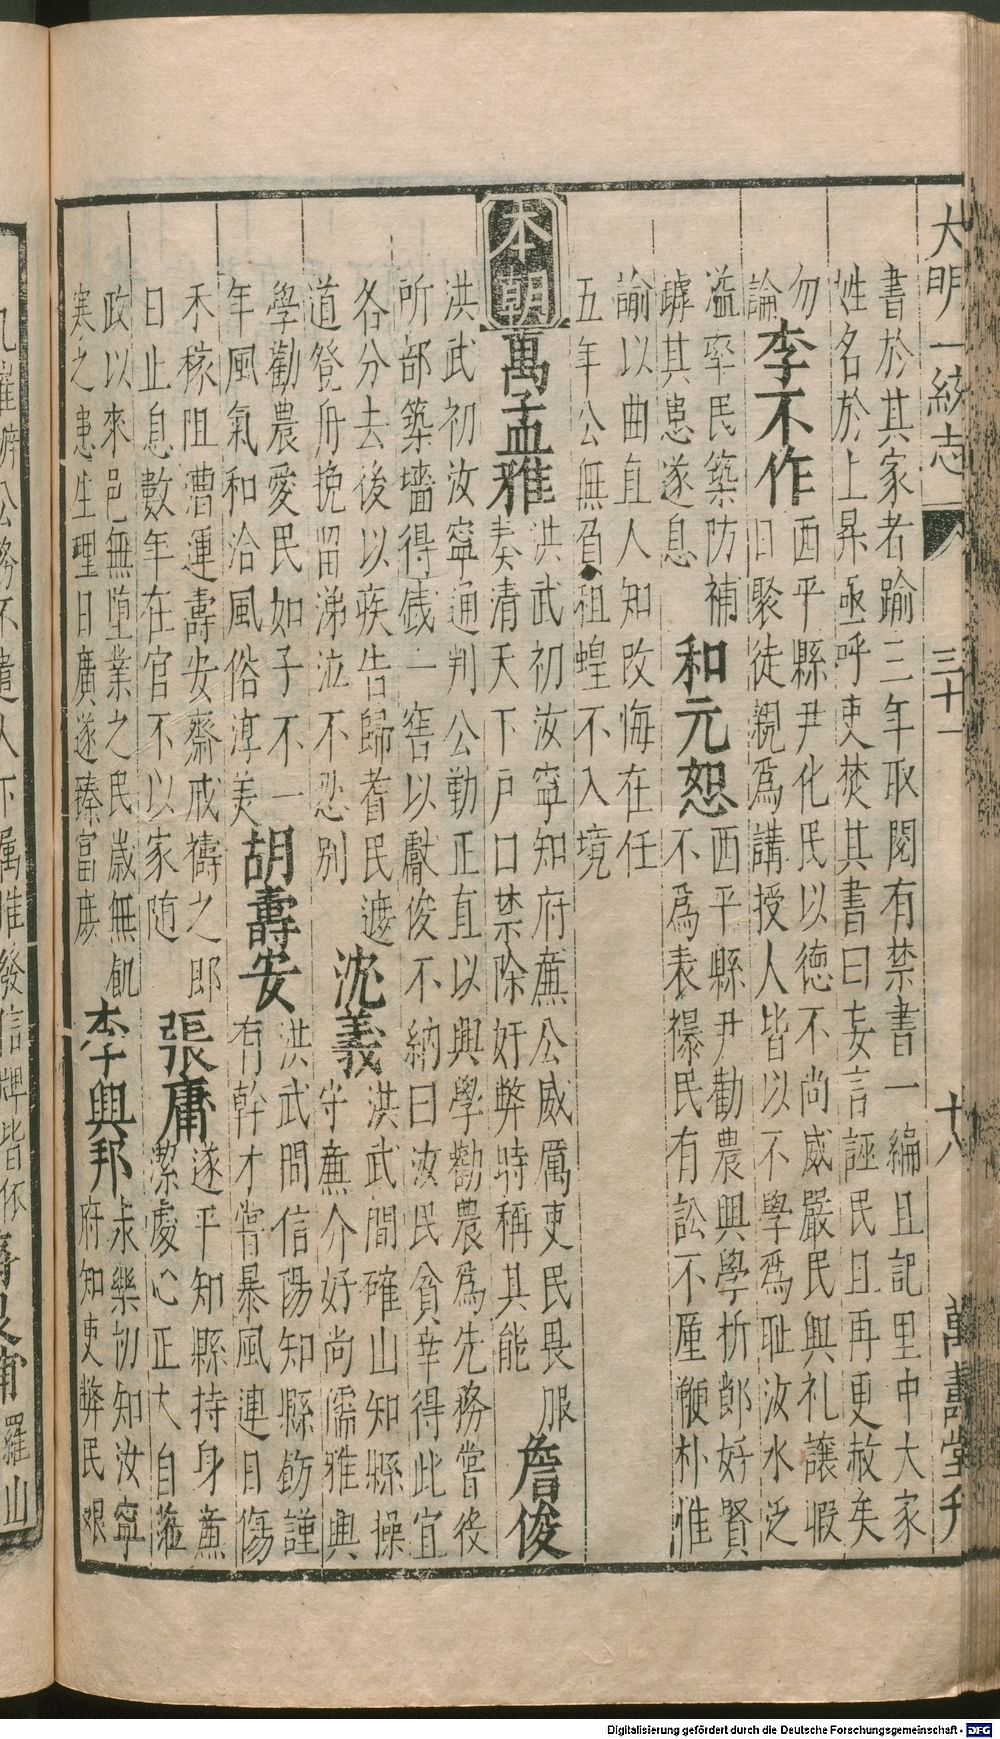 大明一統志 三十一 十八 萬壽堂刊
書於其家者踰三年取閱有禁書一編且記里中大家
姓名於上昇亟呼吏焚其書曰妄言誣民且再更赦矣
勿論
李不作
西平縣尹化民以德不尚威嚴民興礼讓暇
日聚徒親爲講授人皆以不學爲耻汝水泛
溢率民築防補
罅其患遂息
和元恕
西平縣尹勸農興學折郎好賢
不爲表襮民有訟不厓鞭朴惟
諭以曲直人知改悔在任
五年公無負租蝗不入境
本朝
萬孟雅
洪武初汝寧知府蔗公威厲吏民畏服
奏清天下户口禁除奸弊特稱其能
詹俊
洪武初汝寧通判公勤正直以興學勸農爲先務嘗役
所部築墻得銭一窖以獻俊不納曰汝民貧幸得此宜
各分去後以疾告歸耆民遮
道登舟挽留涕泣不忍别
沈義
洪武間確山知縣操
守蔗介好尚儒雅興
學勸農愛民如子不一
年風氣和洽風俗淳美
胡壽安
洪武間信陽知縣飭謹
有幹才嘗暴風連日傷
禾稼阻漕運壽安齋戒禱之即
日止息數年在官不以家随
張庸
遂平知縣持身蔗
潔處心正大自蒞
政以來邑無堕業之民歲無飢
寒之患生理日廣遂臻富庶
李興邦
永樂初知汝寧
府知吏弊民艱
公務不遣人下属惟發信牌皆依
羅山
Digitalisierung gefördert durch die Deutsche Forschungsgemeinschaft - DFG